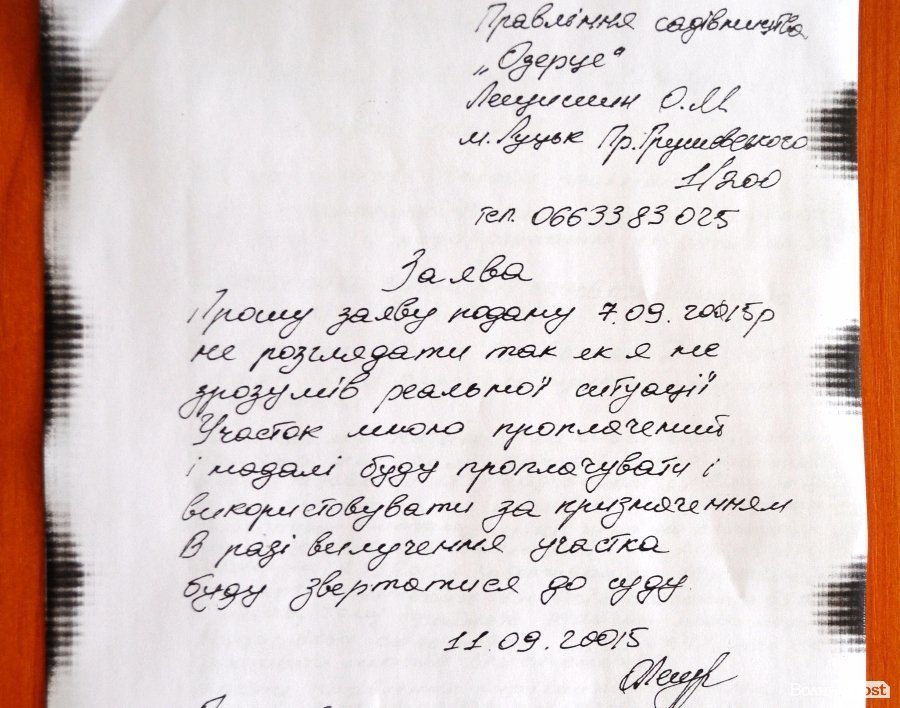 Правління садівництва
„Озерце"
Лещишин О.М.
м. Луцьк Пр. Грушевського
1/200
тел. 0663383025
Заява
Прошу заяву подану 7.09.20015р
не розглядати так як я не
зрозумів реальної ситуації
Участок мною проплачений
і надалі буду проплачувати і
використовувати за призняченням
В разі вилучення участка
буду звертатися до суду.
11.09.20015